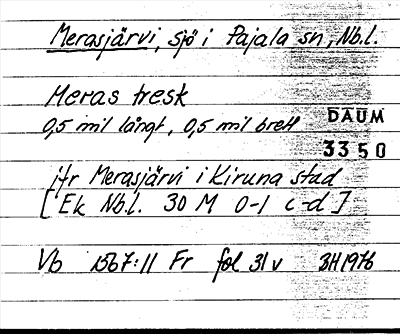 Merasjärvi, sjö i Pajala sn, Nb.l.
Meras tresk
0,5 mil långt, 0,5 mil brett
DAUM
3350
jfr Merasjärvi i Kiruna stad
[Ek Nb.l. 30 M 0-1 c-d]
Vb 1567:11 Fr fol 31 v BH 1976